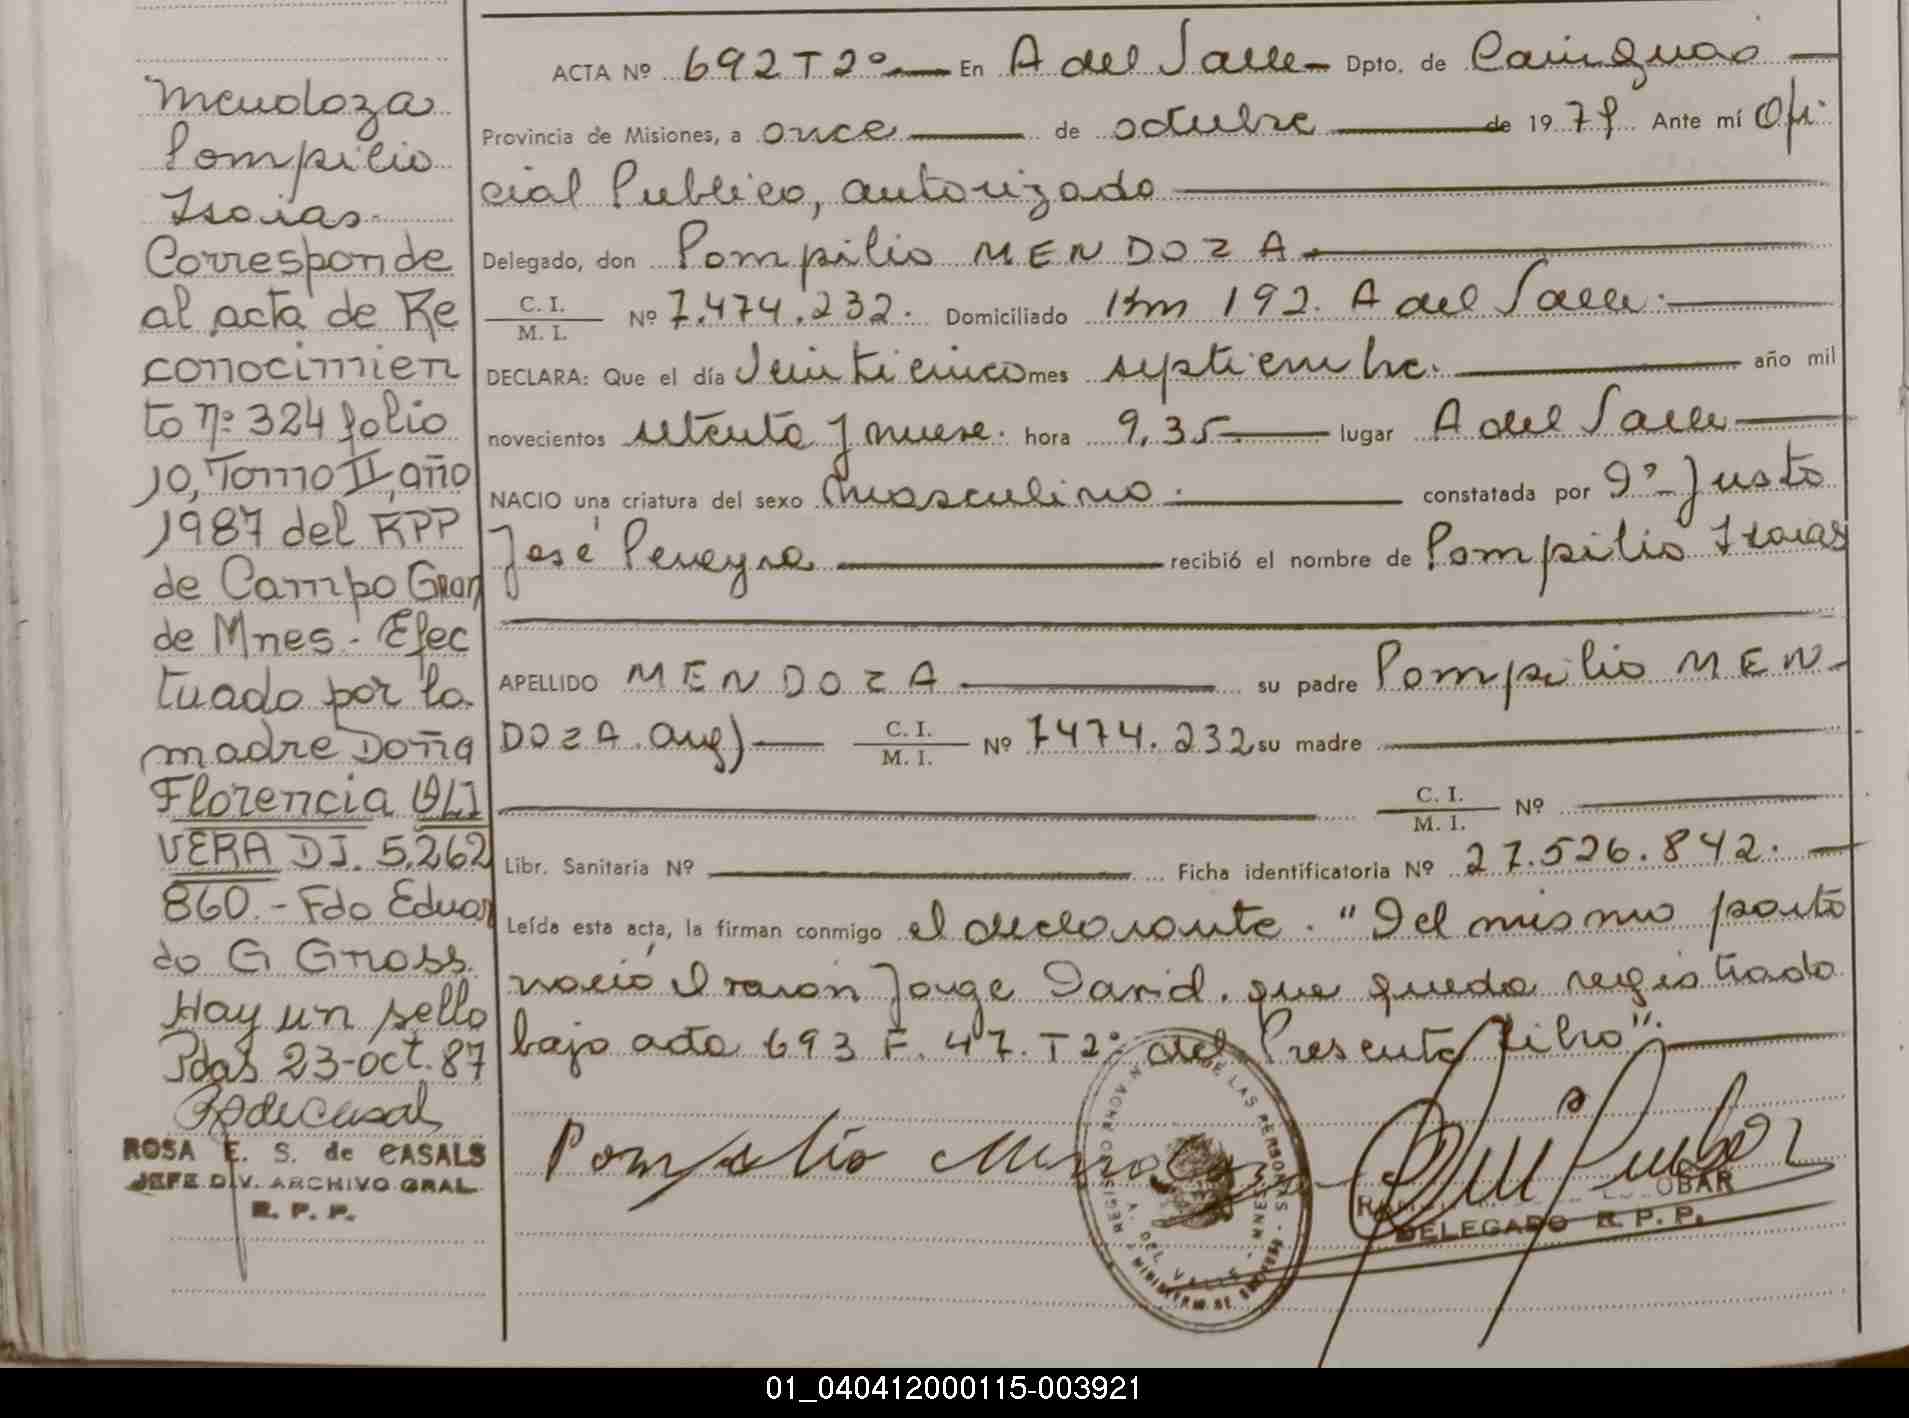 Mendoza
Pompilio
Isaias.
Corresponde
al acta de Re
conocimien
to nº 324 folio
10, Tomo II, año
1987 del RPP
de Campo Gran
de Mnes. Efec
tuado por la
madre Doña
Florencia OLI
VERA DI. 5.262
860.- Fdo Eduar
do G Gross.
Hay un sello
Pdas 23-oct. 87
ROSA E. S. de CASALS
JEFE DIV. ARCHIVO GRAL.
R. P. P.
ACTA Nº 692 T 2º En A del Valle Dpto. de Cainguas
Provincia de Misiones, a once de octubre de 1979 Ante mí Ofi
cial Publico, autorizado
Delegado, don Pompilio MENDOZA
C. I. M. I. Nº 7.474.232. Domiciliado Km 192. A del Valle.
DECLARA: Que el día Veinticinco mes septiembre. año mil
novecientos setenta y nueve. hora 9,35 lugar A del Valle
NACIO una criatura del sexo masculino. constatada por Dº Justo
José Pereyra recibió el nombre de Pompilio Isaias
APELLIDO MENDOZA su padre Pompilio MEN
DOZA. Arg) C. I. M. I. Nº 7474.232 su madre
C. I. M. I. Nº
Libr. Sanitaria Nº Ficha identificatoria Nº 27.526.842.
Leída esta acta, la firman conmigo el declarante. "Del mismo parto
nació el varón Jorge David. que queda registrado
bajo acta 693 F. 47. T 2º del Presente libro".
Pompilio Mendoza
REGISTRO PROVIN DE LAS PERSONAS
A. DEL VALLE
MINISTERIO DE GOBIERNO
DELEGADO R. P. P.
01_040412000115-003921